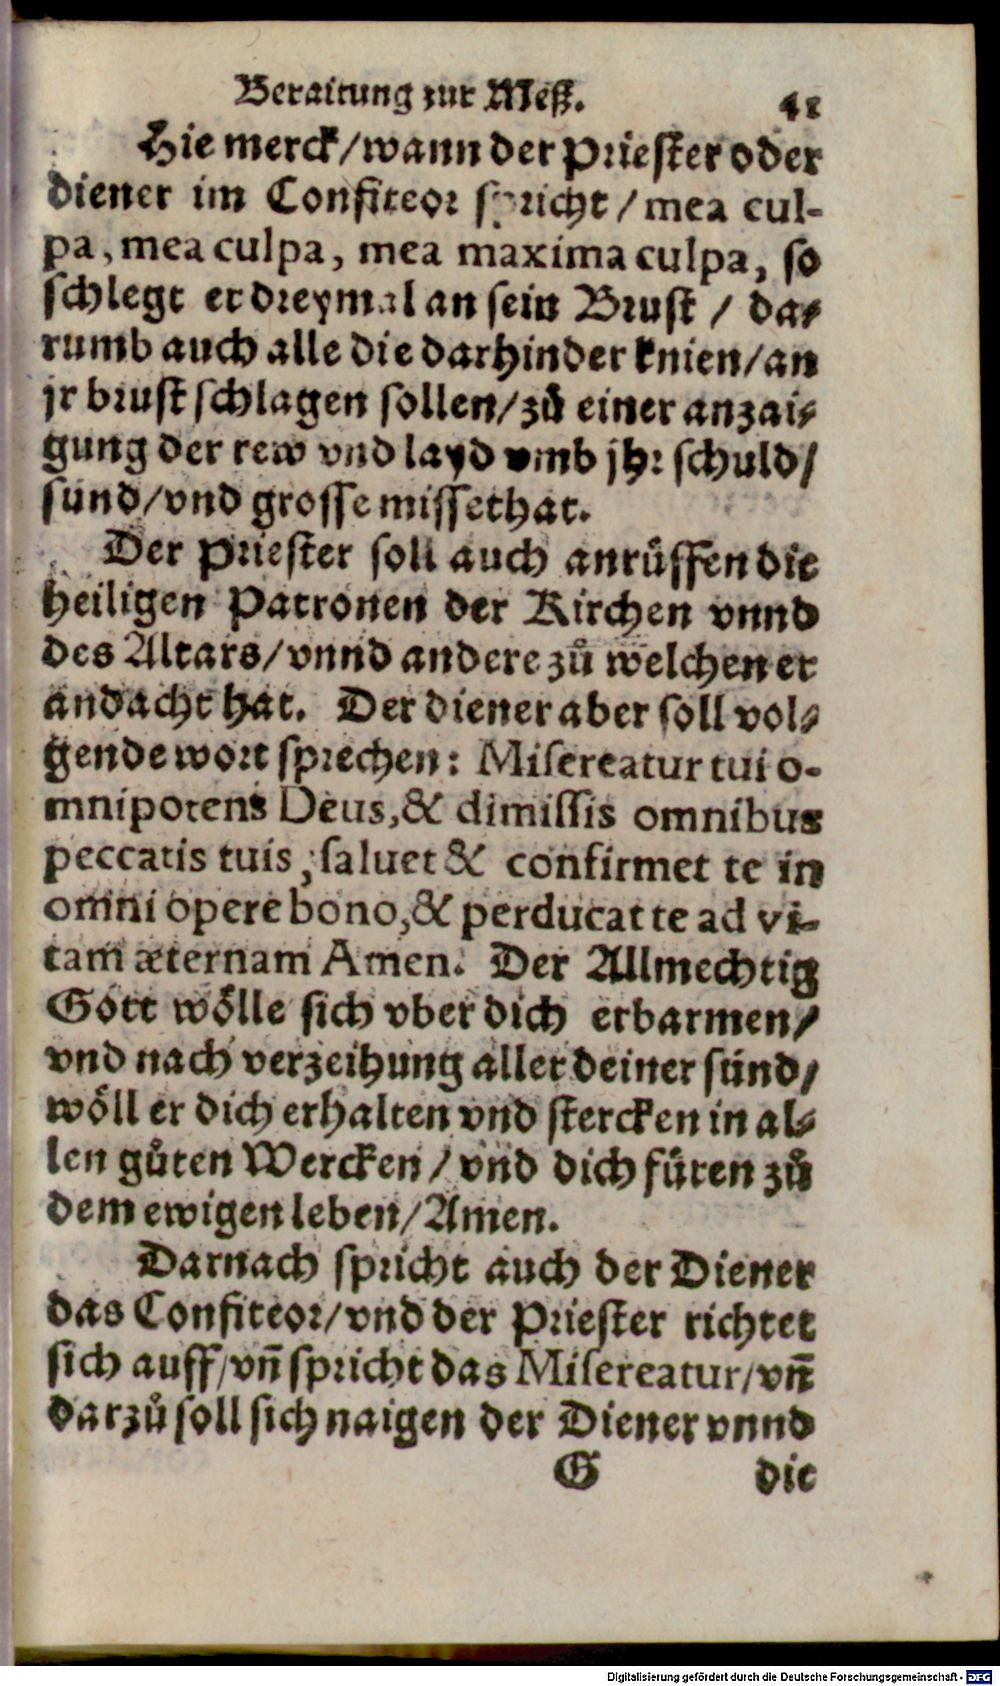 Beraitung zur Meß. 41
Hie merck/wann der Priester oder
diener im Confiteor spricht/mea cul-
pa, mea culpa, mea maxima culpa, so
schlegt er dreymal an sein Brust / da-
rumb auch alle die darhinder knien/an
jr brust schlagen sollen/zů einer anzai-
gung der rew vnd layd vmb jhr schuld/
sünd/vnd grosse missethat.
Der Priester soll auch anrůffen die
heiligen Patronen der Kirchen vnnd
des Altars/vnnd andere zů welchen er
andacht hat. Der diener aber soll vol-
gende wort sprechen: Misereatur tui o-
mnipotens Deus, & dimissis omnibus
peccatis tuis, saluet & confirmet te in
omni opere bono, & perducat te ad vi-
tam æternam Amen. Der Allmechtig
Gott wölle sich vber dich erbarmen/
vnd nach verzeihung aller deiner sünd/
wöll er dich erhalten vnd stercken in al-
len gůten Wercken/vnd dich füren zů
dem ewigen leben/Amen.
Darnach spricht auch der Diener
das Confiteor/vnd der Priester richtet
sich auff/vñ spricht das Misereatur/vñ
darzů soll sich naigen der Diener vnnd
G die
Digitalisierung gefördert durch die Deutsche Forschungsgemeinschaft - DFG